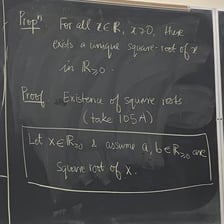 Propⁿ. For all x ∈ ℝ, x ≥ 0, there
exists a unique square-root of x
in ℝ≥0.
Proof. Existence of square roots
(take 105A)
Let x ∈ ℝ≥0 & assume a, b ∈ ℝ≥0 are
square root of x.